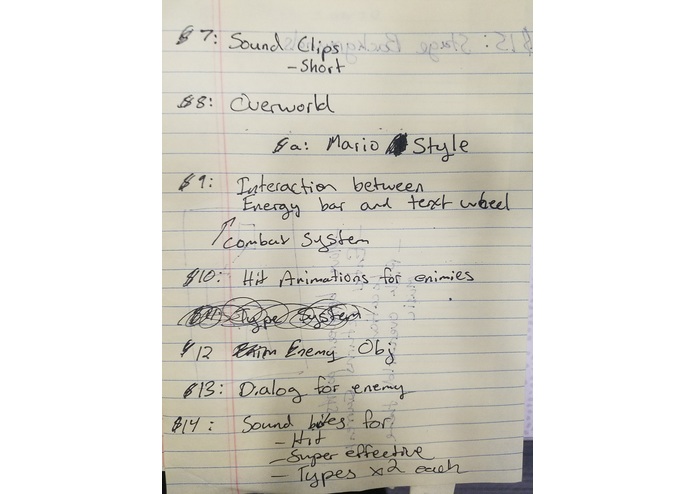 $7: Sound Clips
- Short
$8: Overworld
$a: Mario Style
$9: Interaction between
Energy bar and text wheel
Combat System
$10: Hit Animations for enimies
$11: Type System
$12 Enemy Obj
$13: Dialog for enemy
$14: Sound bites for
- Hit
- Super effective
- Types x2 each